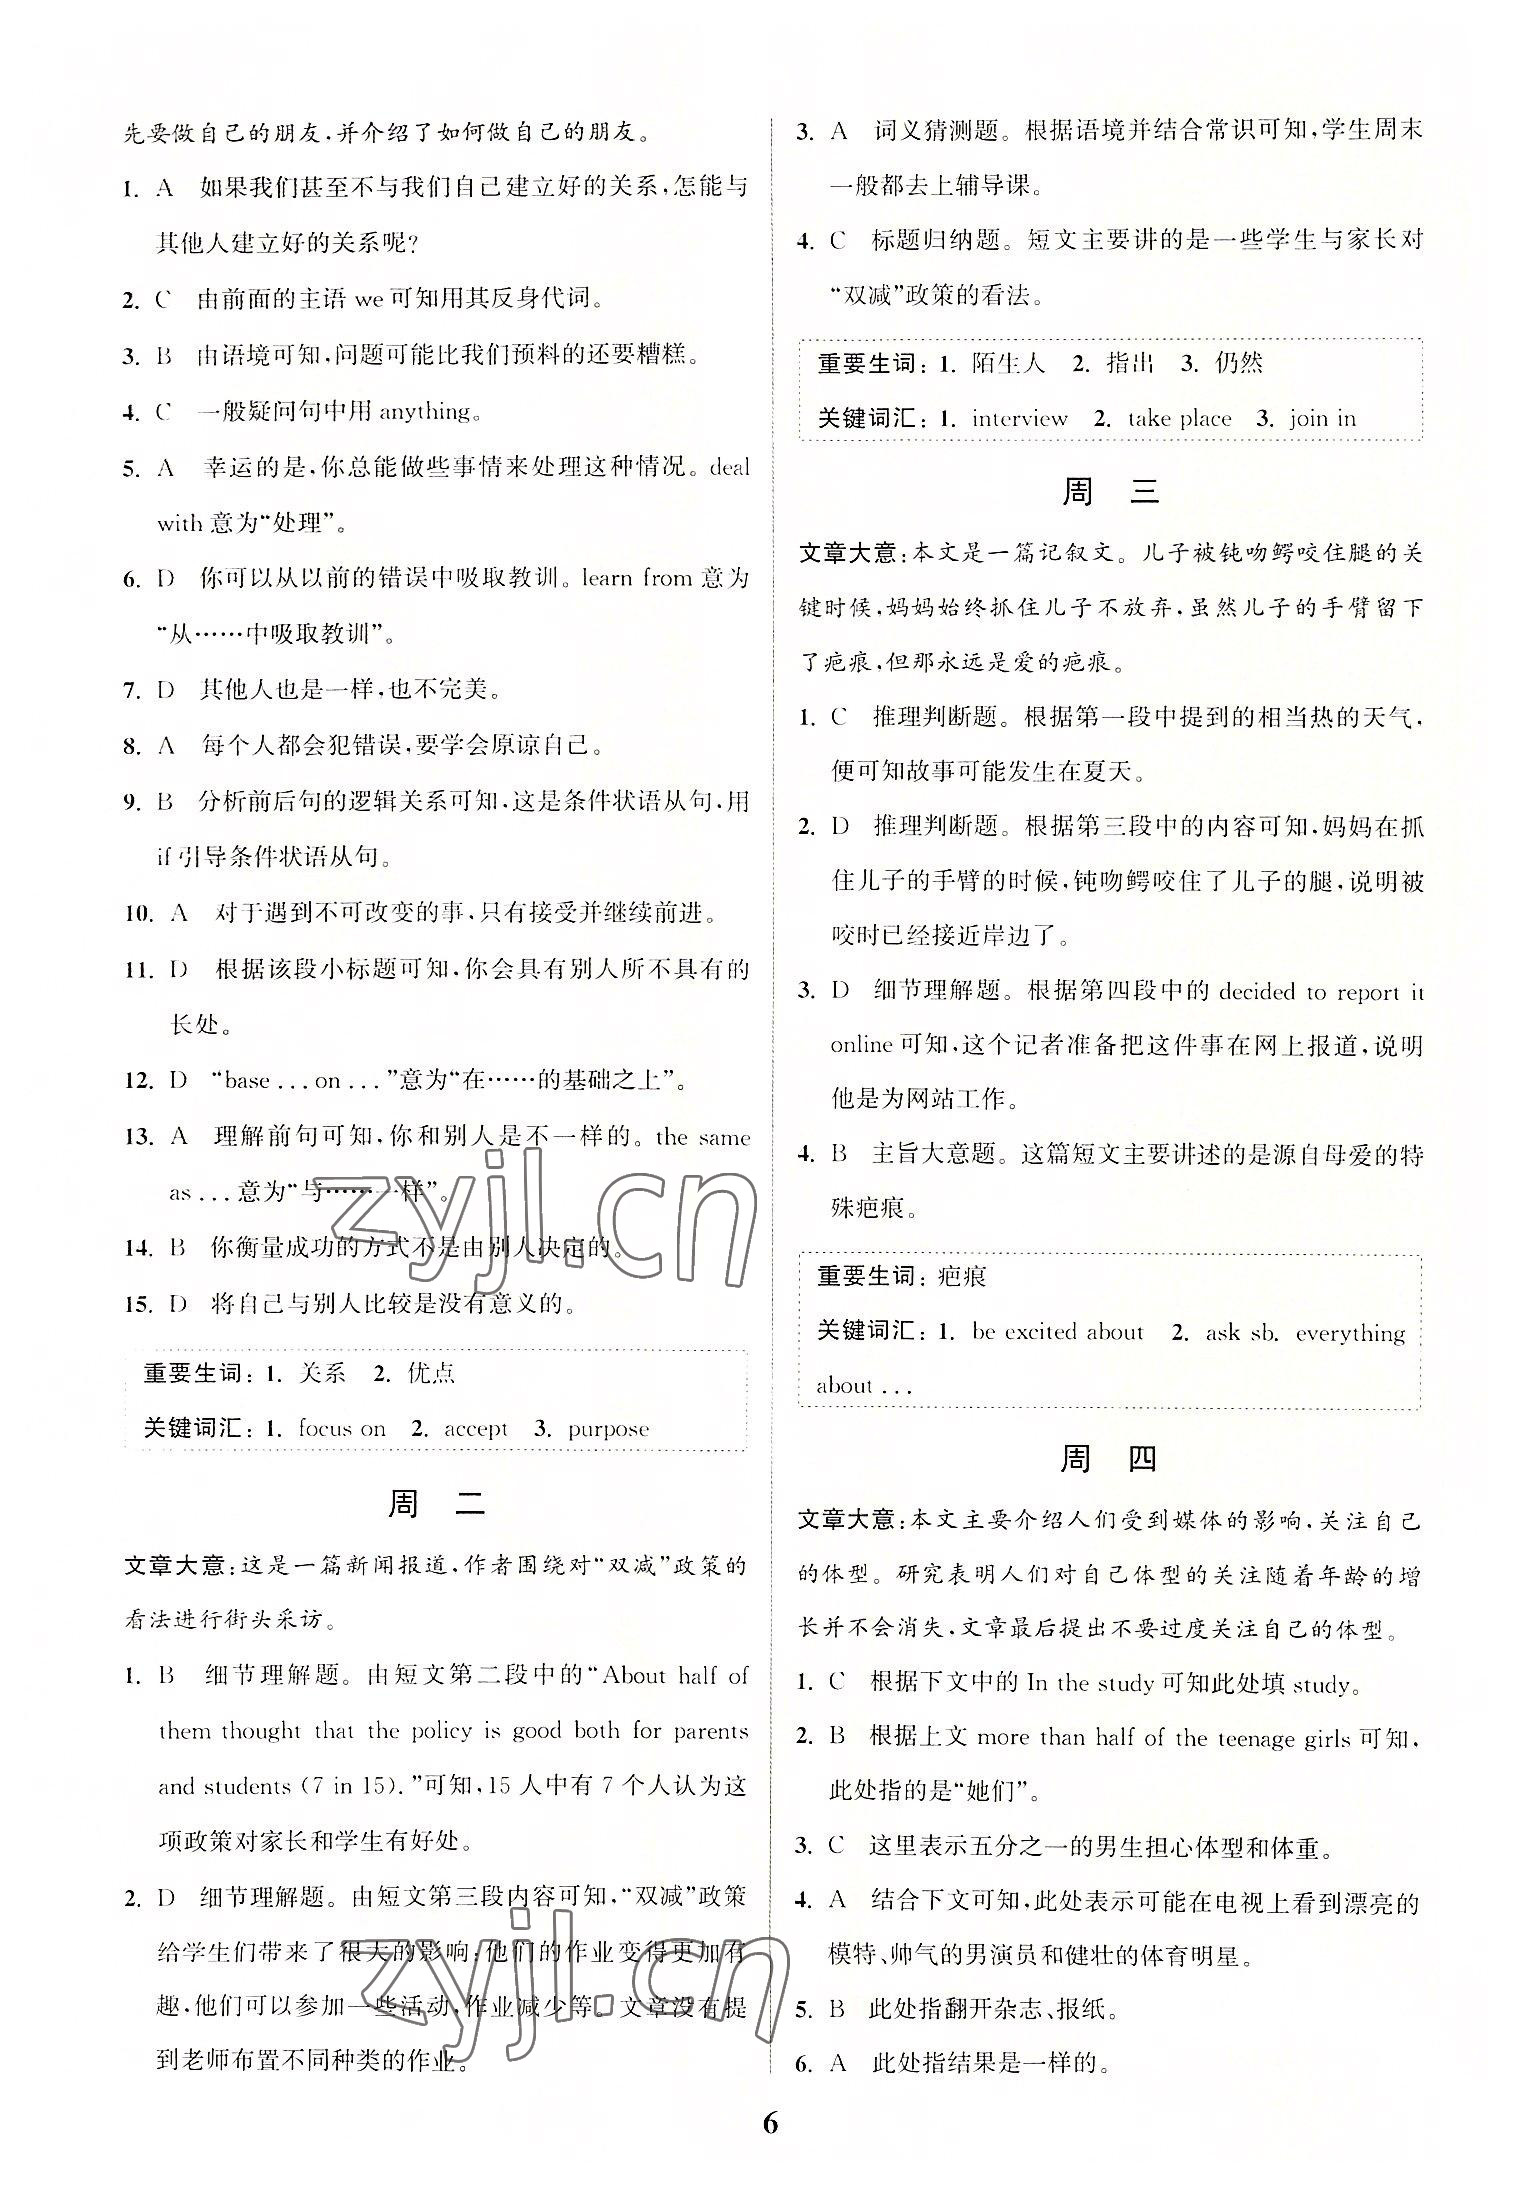 先要做自己的朋友,并介绍了如何做自己的朋友。
1. A 如果我们甚至不与我们自己建立好的关系,怎能与
其他人建立好的关系呢?
2. C 由前面的主语 we 可知用其反身代词。
3. B 由语境可知,问题可能比我们预料的还要糟糕。
4. C 一般疑问句中用 anything。
5. A 幸运的是,你总能做些事情来处理这种情况。deal
with 意为“处理”。
6. D 你可以从以前的错误中吸取教训。learn from 意为
“从……中吸取教训”。
7. D 其他人也是一样,也不完美。
8. A 每个人都会犯错误,要学会原谅自己。
9. B 分析前后句的逻辑关系可知,这是条件状语从句,用
if 引导条件状语从句。
10. A 对于遇到不可改变的事,只有接受并继续前进。
11. D 根据该段小标题可知,你会具有别人所不具有的
长处。
12. D “base ... on ...”意为“在……的基础之上”。
13. A 理解前句可知,你和别人是不一样的。the same
as ... 意为“与……一样”。
14. B 你衡量成功的方式不是由别人决定的。
15. D 将自己与别人比较是没有意义的。
重要生词:1. 关系 2. 优点
关键词汇:1. focus on 2. accept 3. purpose
周 二
文章大意:这是一篇新闻报道,作者围绕对“双减”政策的
看法进行街头采访。
1. B 细节理解题。由短文第二段中的“About half of
them thought that the policy is good both for parents
and students (7 in 15).”可知,15 人中有 7 个人认为这
项政策对家长和学生有好处。
2. D 细节理解题。由短文第三段内容可知,“双减”政策
给学生们带来了很大的影响:他们的作业变得更加有
趣,他们可以参加一些活动,作业减少等。文章没有提
到老师布置不同种类的作业。
3. A 词义猜测题。根据语境并结合常识可知,学生周末
一般都去上辅导课。
4. C 标题归纳题。短文主要讲的是一些学生与家长对
“双减”政策的看法。
重要生词:1. 陌生人 2. 指出 3. 仍然
关键词汇:1. interview 2. take place 3. join in
周 三
文章大意:本文是一篇记叙文。儿子被钝吻鳄咬住腿的关
键时候,妈妈始终抓住儿子不放弃,虽然儿子的手臂留下
了疤痕,但那永远是爱的疤痕。
1. C 推理判断题。根据第一段中提到的相当热的天气,
便可知故事可能发生在夏天。
2. D 推理判断题。根据第三段中的内容可知,妈妈在抓
住儿子的手臂的时候,钝吻鳄咬住了儿子的腿,说明被
咬时已经接近岸边了。
3. D 细节理解题。根据第四段中的 decided to report it
online 可知,这个记者准备把这件事在网上报道,说明
他是为网站工作。
4. B 主旨大意题。这篇短文主要讲述的是源自母爱的特
殊疤痕。
重要生词:疤痕
关键词汇:1. be excited about 2. ask sb. everything
about ...
周 四
文章大意:本文主要介绍人们受到媒体的影响,关注自己
的体型。研究表明人们对自己体型的关注随着年龄的增
长并不会消失,文章最后提出不要过度关注自己的体型。
1. C 根据下文中的 In the study 可知此处填 study。
2. B 根据上文 more than half of the teenage girls 可知,
此处指的是“她们”。
3. C 这里表示五分之一的男生担心体型和体重。
4. A 结合下文可知,此处表示可能在电视上看到漂亮的
模特、帅气的男演员和健壮的体育明星。
5. B 此处指翻开杂志、报纸。
6. A 此处指结果是一样的。
6
zyjl.cn
zyjl.cn